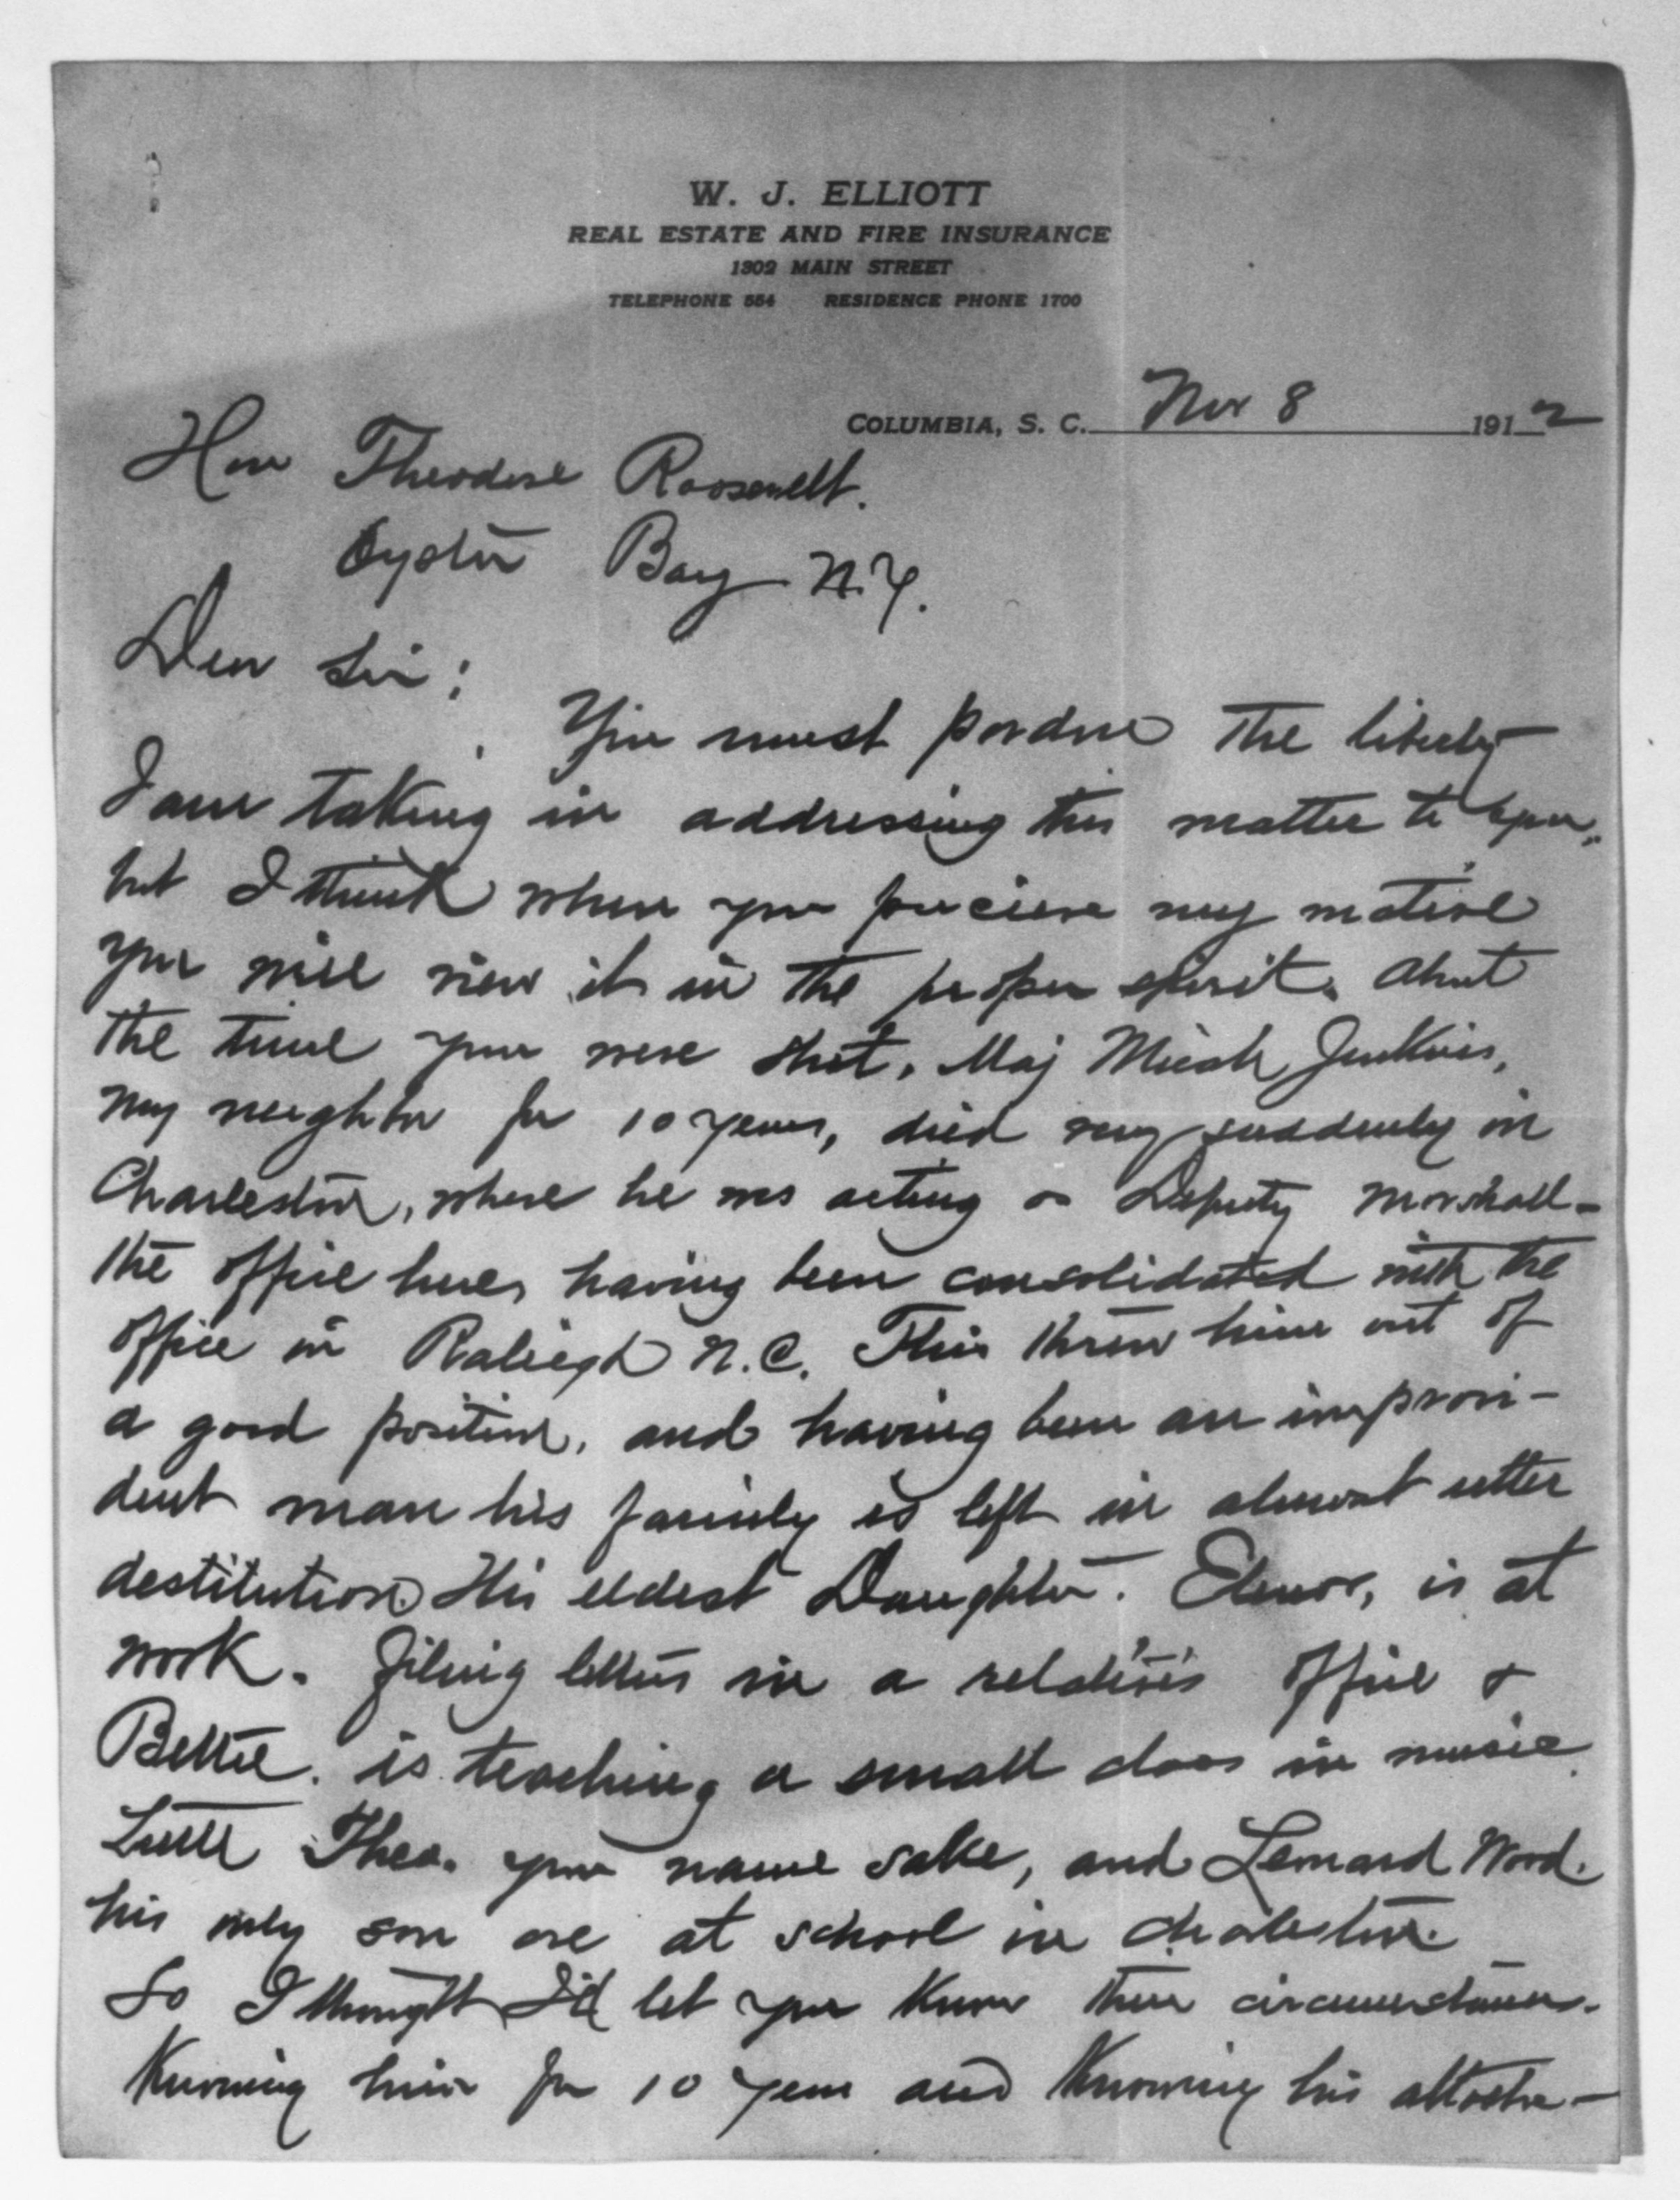 W. J. ELLIOTT
REAL ESTATE AND FIRE INSURANCE
1302 MAIN STREET
TELEPHONE 554 RESIDENCE PHONE 1700
COLUMBIA, S. C. Nov 8 1912
Hon Theodore Roosevelt.
Oyster Bay N.Y.
Dear Sir:
You must pardon the liberty
I am taking in addressing this matter to you,
but I think when you perceive my motive
you will view it in the proper spirit. About
the time you were shot, Maj Micah Jenkins,
my neighbor for 10 years, died very suddenly in
Charleston, where he was acting as Deputy Marshall-
the office here, having been consolidated with the
office in Raleigh N.C. This threw him out of
a good position, and having been an improvi-
dent man his family is left in almost utter
destitution. His eldest Daughter. Elenor, is at
work. filing letters in a relative's office &
Bettie. is teaching a small class in music.
Little Theo. your name sake, and Leonard Wood.
his only son are at school in Charleston.
So I thought I'd let you know their circumstances.
Knowing him for 10 years and knowing his attache-